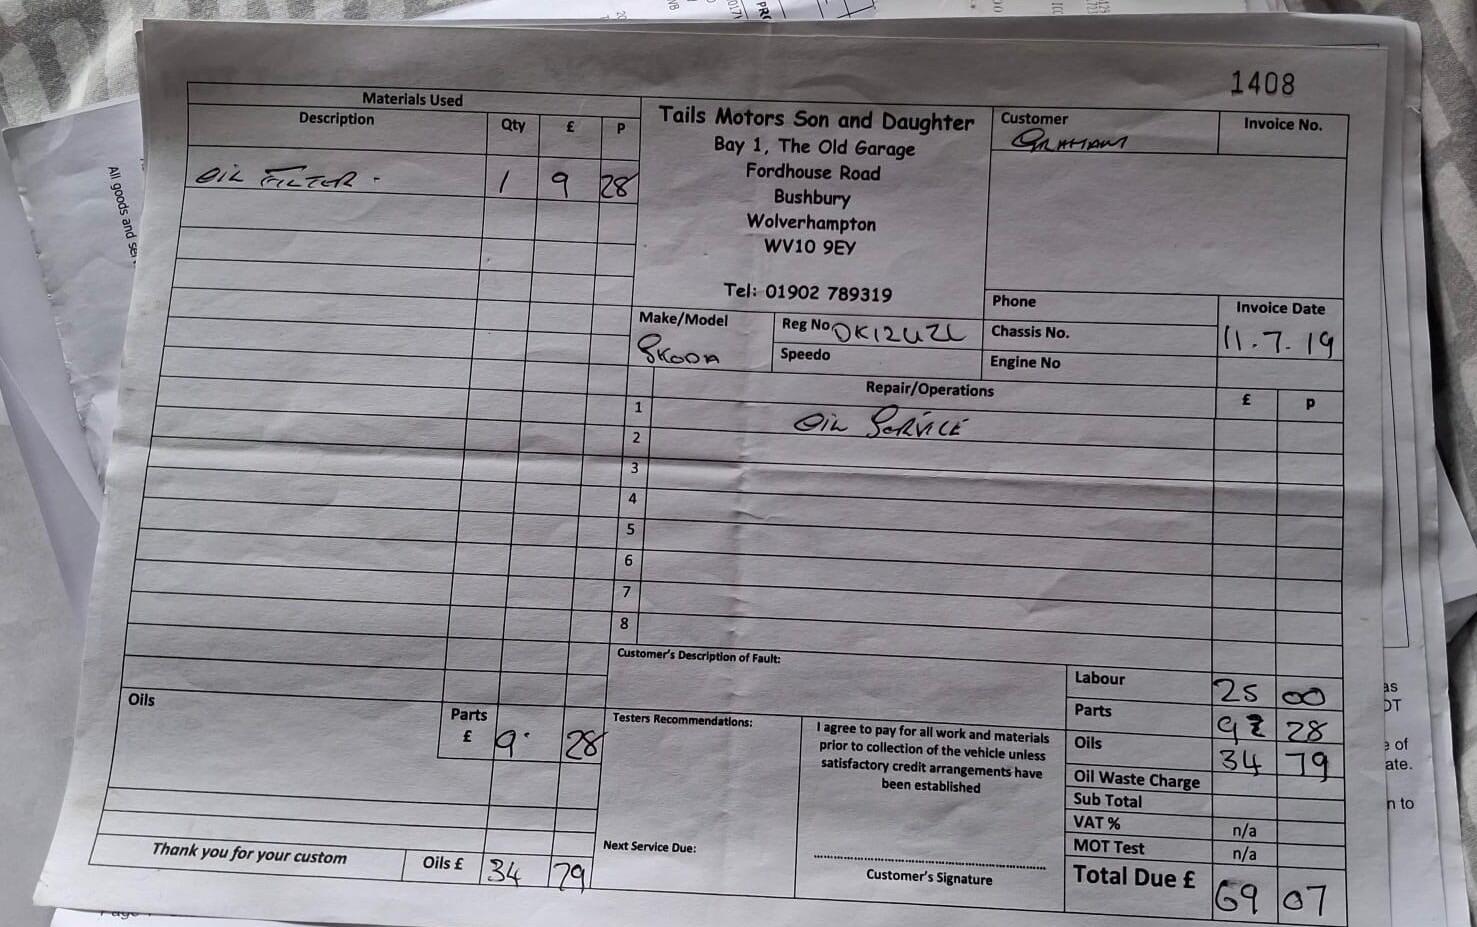 1408
Materials Used
Description Qty £ P
OIL FILTER - 1 9 28
Tails Motors Son and Daughter
Bay 1, The Old Garage
Fordhouse Road
Bushbury
Wolverhampton
WV10 9EY
Tel: 01902 789319
Customer
GRAHAM
Invoice No.
Phone
Invoice Date
11.7.19
Make/Model
SKODA
Reg No OK12UZL
Speedo
Chassis No.
Engine No
Repair/Operations £ p
1
OIL SERVICE
2
3
4
5
6
7
8
Customer's Description of Fault:
Oils
Parts
£ 9. 28
Testers Recommendations:
Next Service Due:
I agree to pay for all work and materials
prior to collection of the vehicle unless
satisfactory credit arrangements have
been established
Customer's Signature
Labour 25 00
Parts 9 28
Oils 34 79
Oil Waste Charge
Sub Total
VAT % n/a
MOT Test n/a
Total Due £ 69 07
Thank you for your custom
Oils £ 34 79
All goods and
as
OT
e of
ate.
n to